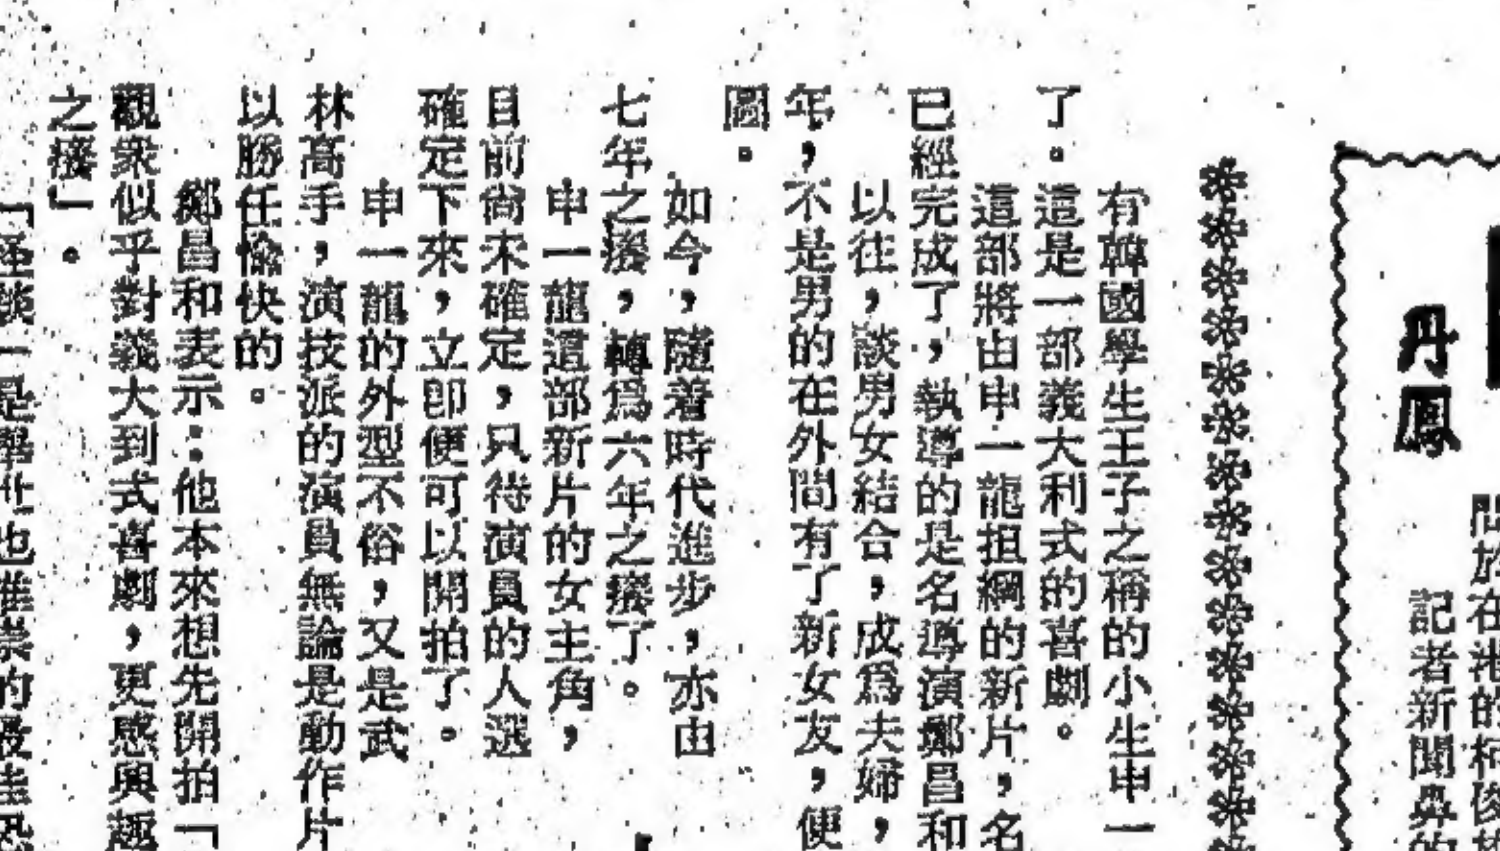 問於在港的柯俊
記者新聞鼻的
丹鳳
有韓國學生王子之稱的小生申一
了。這是一部義大利式的喜劇。
這部將由申一龍担綱的新片，名
已經完成了，執導的是名導演鄭昌和
以往，談男女結合，成爲夫婦，
年，不是男的在外間有了新女友，便
圖。
如今，隨着時代進步，亦由
七年之癢，轉爲六年之癢了。
申一龍這部新片的女主角，
目前尙未確定，只待演員的人選
確定下來，立卽便可以開拍了。
申一龍的外型不俗，又是武
林高手，演技派的演員無論是動作片
以勝任愉快的。
鄭昌和表示：他本來想先開拍「
觀衆似乎對義大到式喜劇，更感興趣
之癢」。